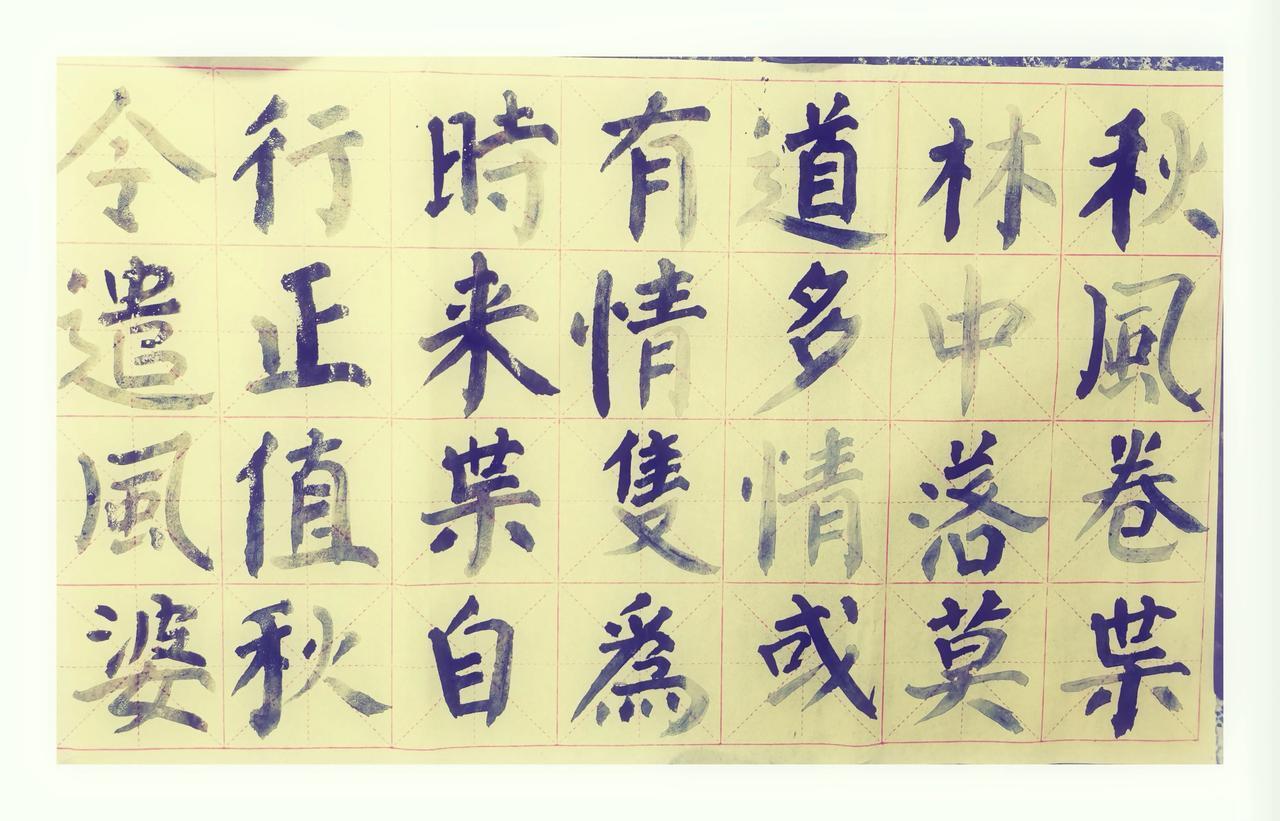 秋風卷枼
林中落莫
道多情或
有情隻爲
時来枼自
行正值秋
令遣風婆